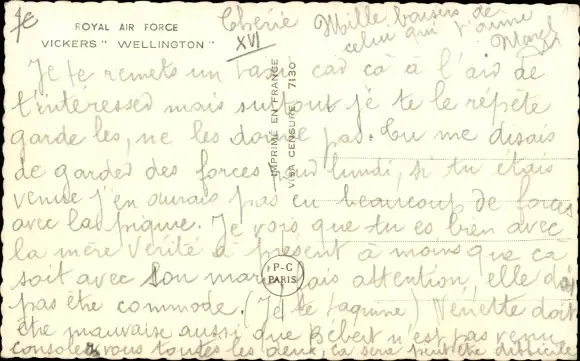 Je
ROYAL AIR FORCE
VICKERS " WELLINGTON "
XVI
Chérie Mille baisers de
celui qui t'aime
Marcel
Je te remets un car ça à l'air de
t'intéresser mais surtout je te le répète
garde les, ne les donne pas. Tu me disais
de garder des forces pour lundi, si tu étais
venue j'en aurais pas eu beaucoup de forces
avec la piqure. Je vois que tu es bien avec
la mère Vérité à présent à moins que ça
soit avec son mais attention, elle doit
pas être commode. (Je te taquine) Venette doit
être mauvaise aussi que Bébert n'est pas venu
consolez vous toutes les deux, ça sera peut être difficile
IMPRIMÉ EN FRANCE
VISA CENSURE 7130
P-C
PARIS